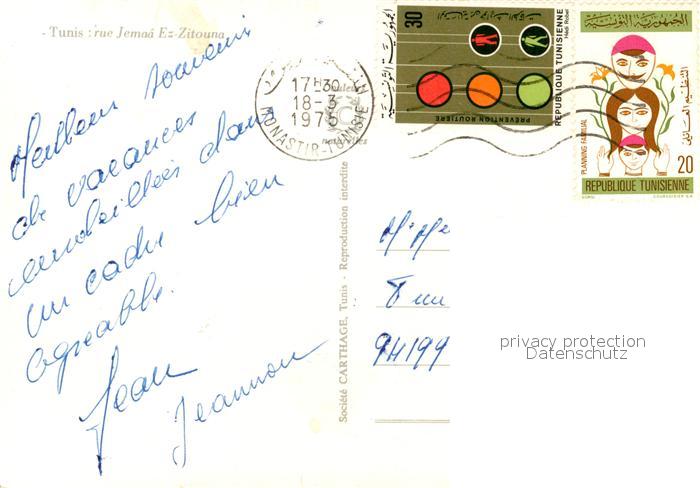 - Tunis : rue Jemaâ Ez-Zitouna
Meilleur souvenir
de vacances
ensoleillées dans
un cadre bien
agréable.
Jean
Jeannou
17H30
18-3
1975
MONASTIR-TUNISIE
30
الجمهورية التونسية
REPUBLIQUE TUNISIENNE
Hedi Robei
PREVENTION ROUTIERE
الجمهورية التونسية
PLANNING FAMILIAL
التنظيم العائلي
20
REPUBLIQUE TUNISIENNE
Société CARTHAGE, Tunis - Reproduction interdite
94199
privacy protection
Datenschutz